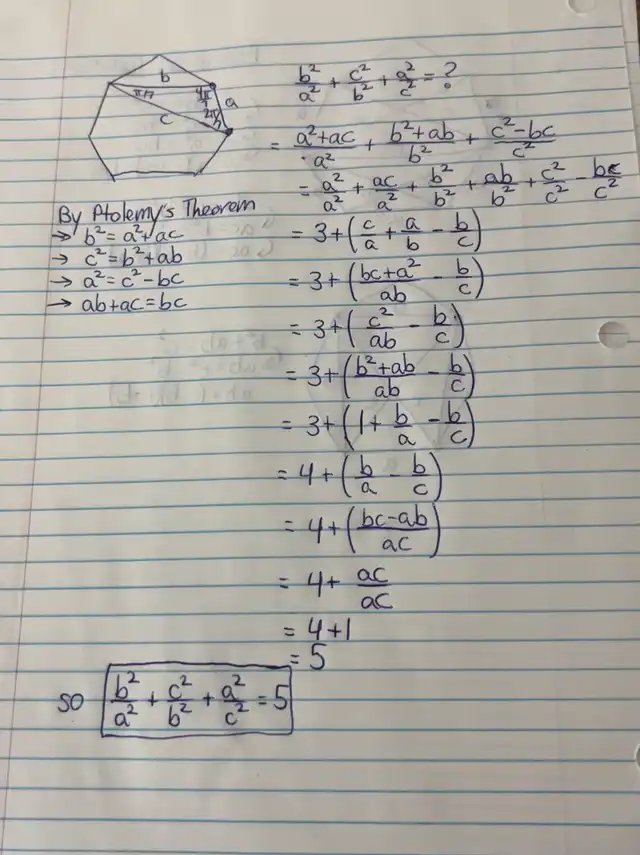 b
π/7
4π/7
a
2π/7
c
b²/a² + c²/b² + a²/c² = ?
= (a²+ac)/a² + (b²+ab)/b² + (c²-bc)/c²
= a²/a² + ac/a² + b²/b² + ab/b² + c²/c² - bc/c²
By Ptolemy's Theorem
→ b² = a²+ac
→ c² = b²+ab
→ a² = c²-bc
→ ab+ac = bc
= 3+(c/a + a/b - b/c)
= 3+((bc+a²)/ab - b/c)
= 3+(c²/ab - b/c)
= 3+((b²+ab)/ab - b/c)
= 3+(1 + b/a - b/c)
= 4+(b/a - b/c)
= 4+((bc-ab)/ac)
= 4+ ac/ac
= 4+1
= 5
SO b²/a² + c²/b² + a²/c² = 5